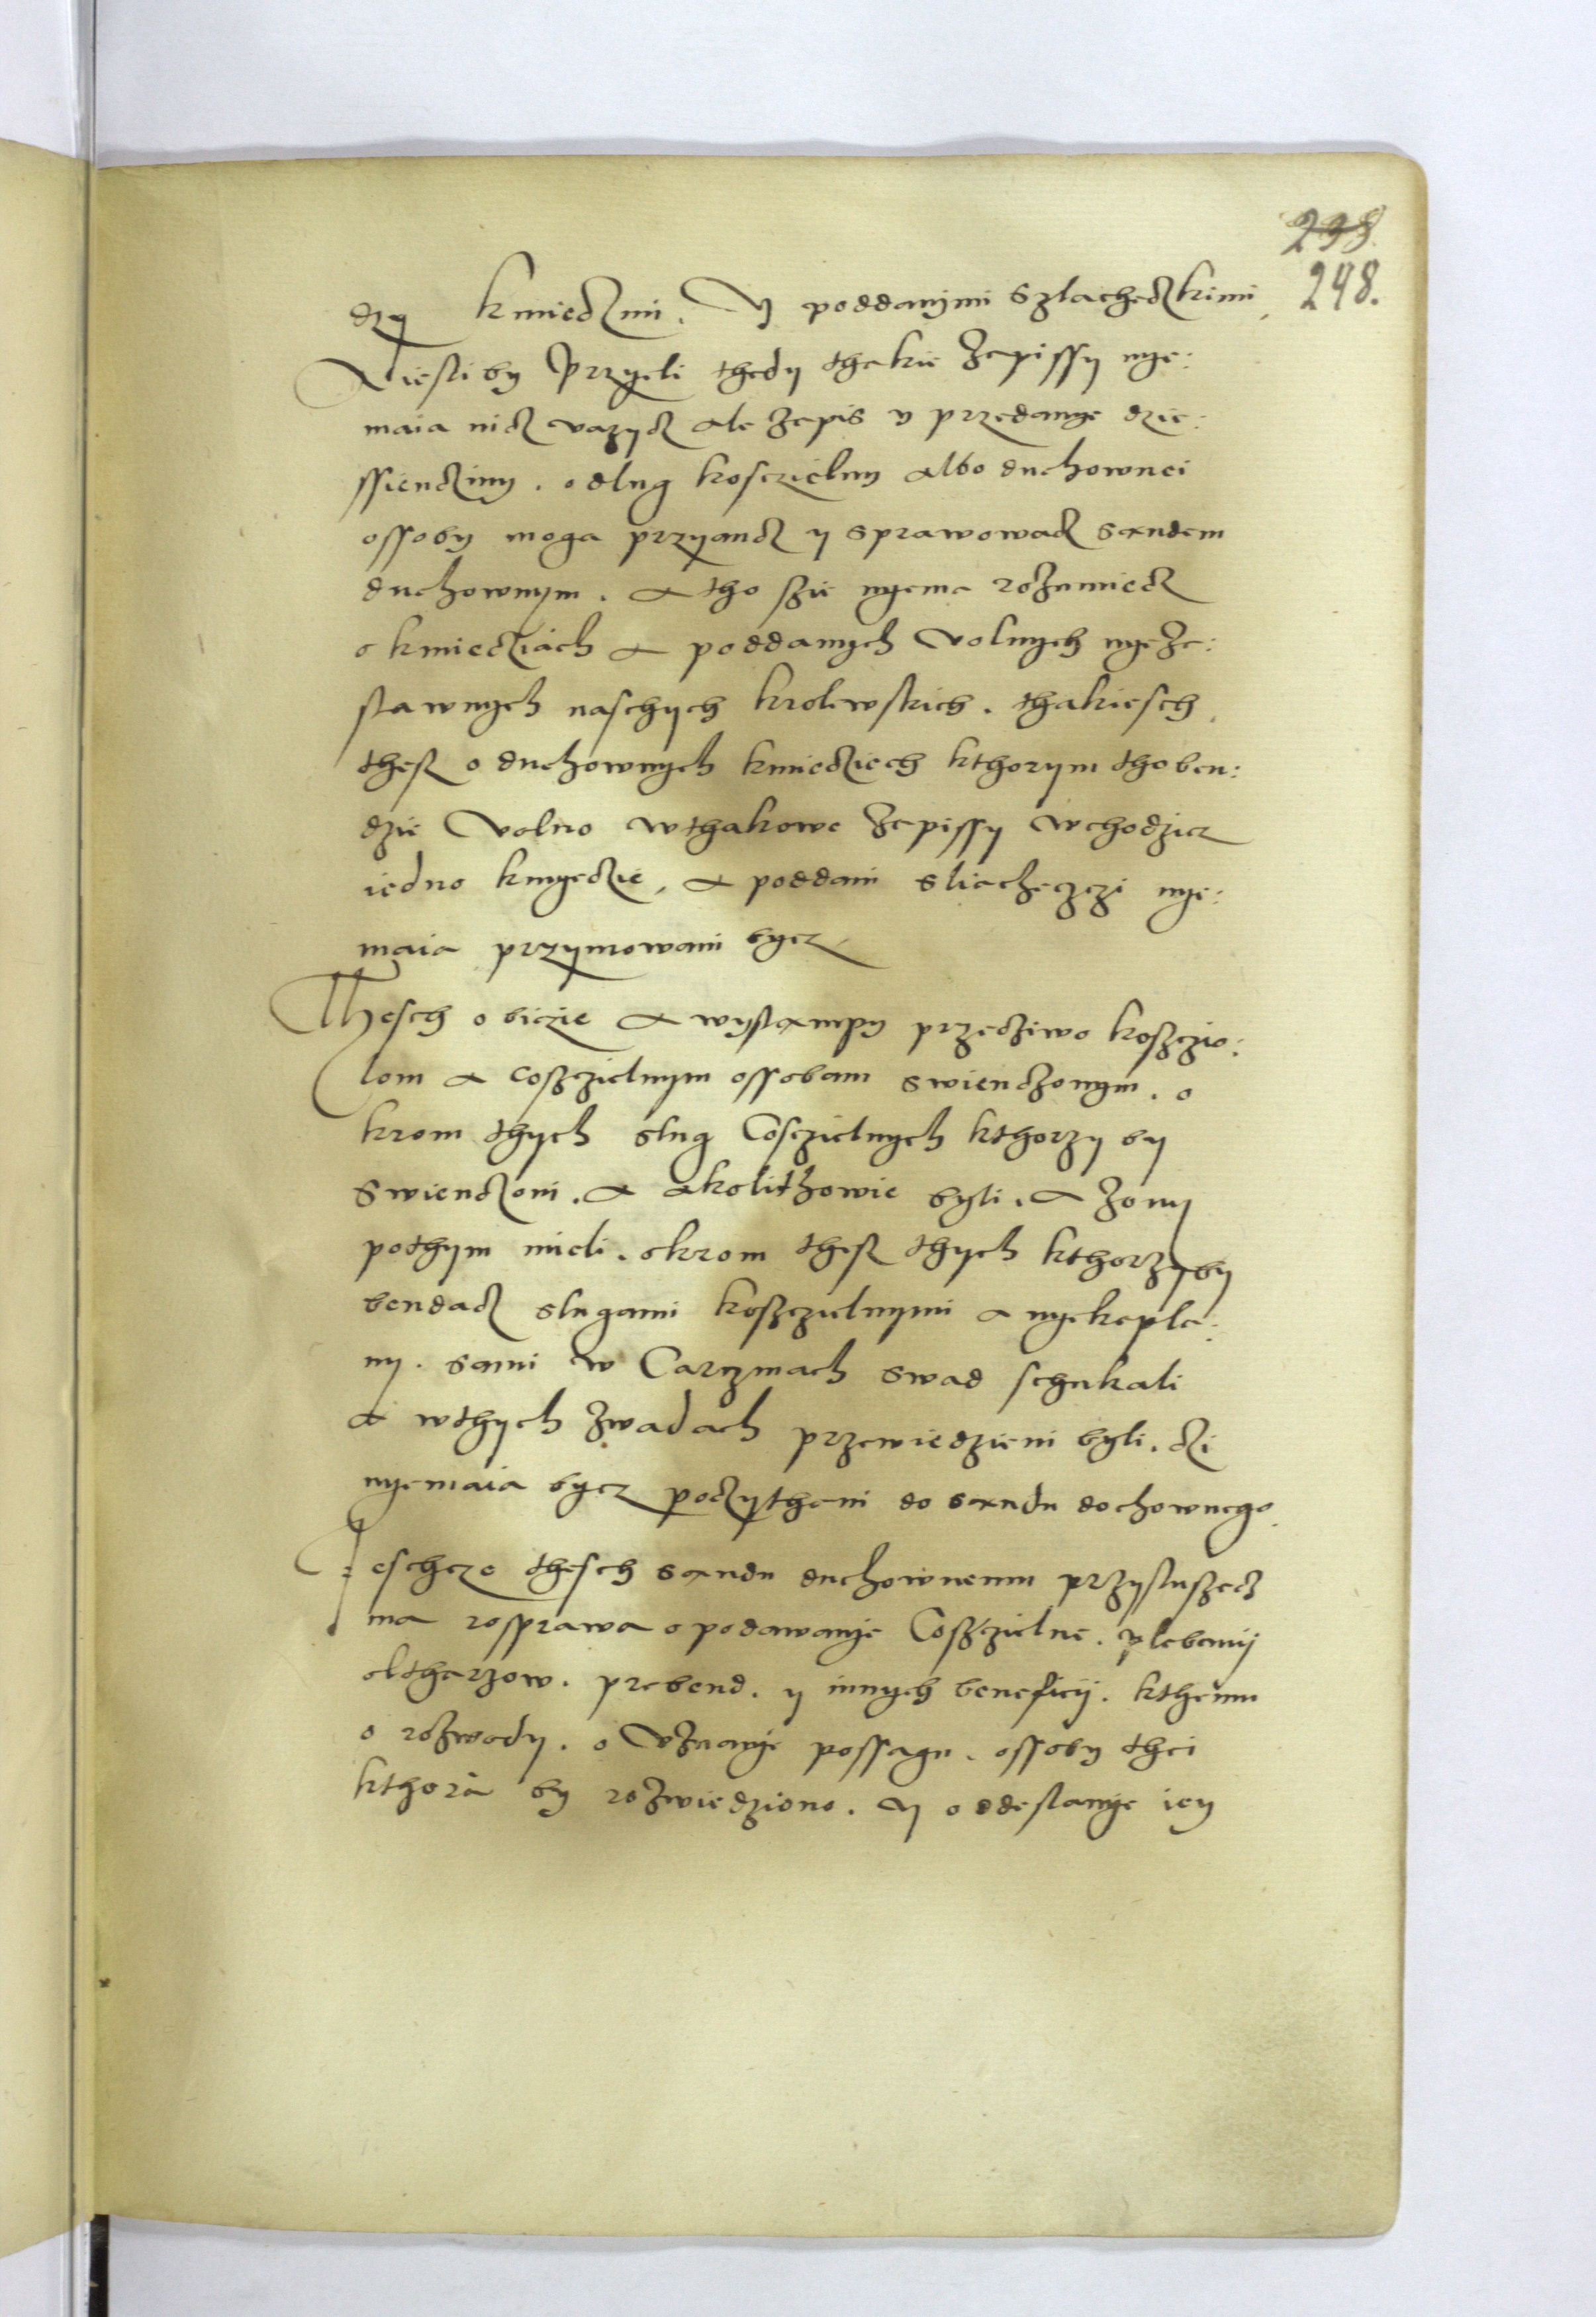 238.
248.
dzy kmieczmi. Y poddanymi szlacheczkimi,
Iesliby Przyęli thedy thakie Zapissy nye:
maia nicz vazycz ale zapis y przedanye dzie:
ssiencziny. o dlug kosczielny albo duchownei
ossoby moga przyiancz y sprawowacz sandem
duchownym. A tho szie nyema rozumiecz
o kmiecziach a poddanych volnych nyeza:
stawnych naschych krolewskich. thakiesch,
thesz o duchownych kmiecziech kthorym tho ben:
dzie Volno wthakowe zapissy wchodzicz
iedno kmyeczie, a poddani sliacheczczi nye:
maia przymowani bycz
Thesch o biczie a wystampy przecziwo koszczio:
lom a coszczielnym ossobam swienczonym. o
krom thych slug Cosczielnych kthorzy by
swienczoni. a akolithowie byli. a zony
pothym mieli. okrom thesz thych kthorzyby
bendacz slugami koszczielnymi a nyekapla:
ny. sami w Carczmach swad schukali
a wthych zwadach przewiedzieni byli. czi
nyemaia bycz poczythani do sandu dochownego.
Ieschcze thesch sandu duchownemu przysluszecz
ma rosprawa o podawanye Coszczielne. plebanij
oltharzow. prebend. y innych beneficij. kthemu
o rozwody. o Vznanye possagu. ossoby thei
kthora by rozwiedziono. y o ddeslanye iey